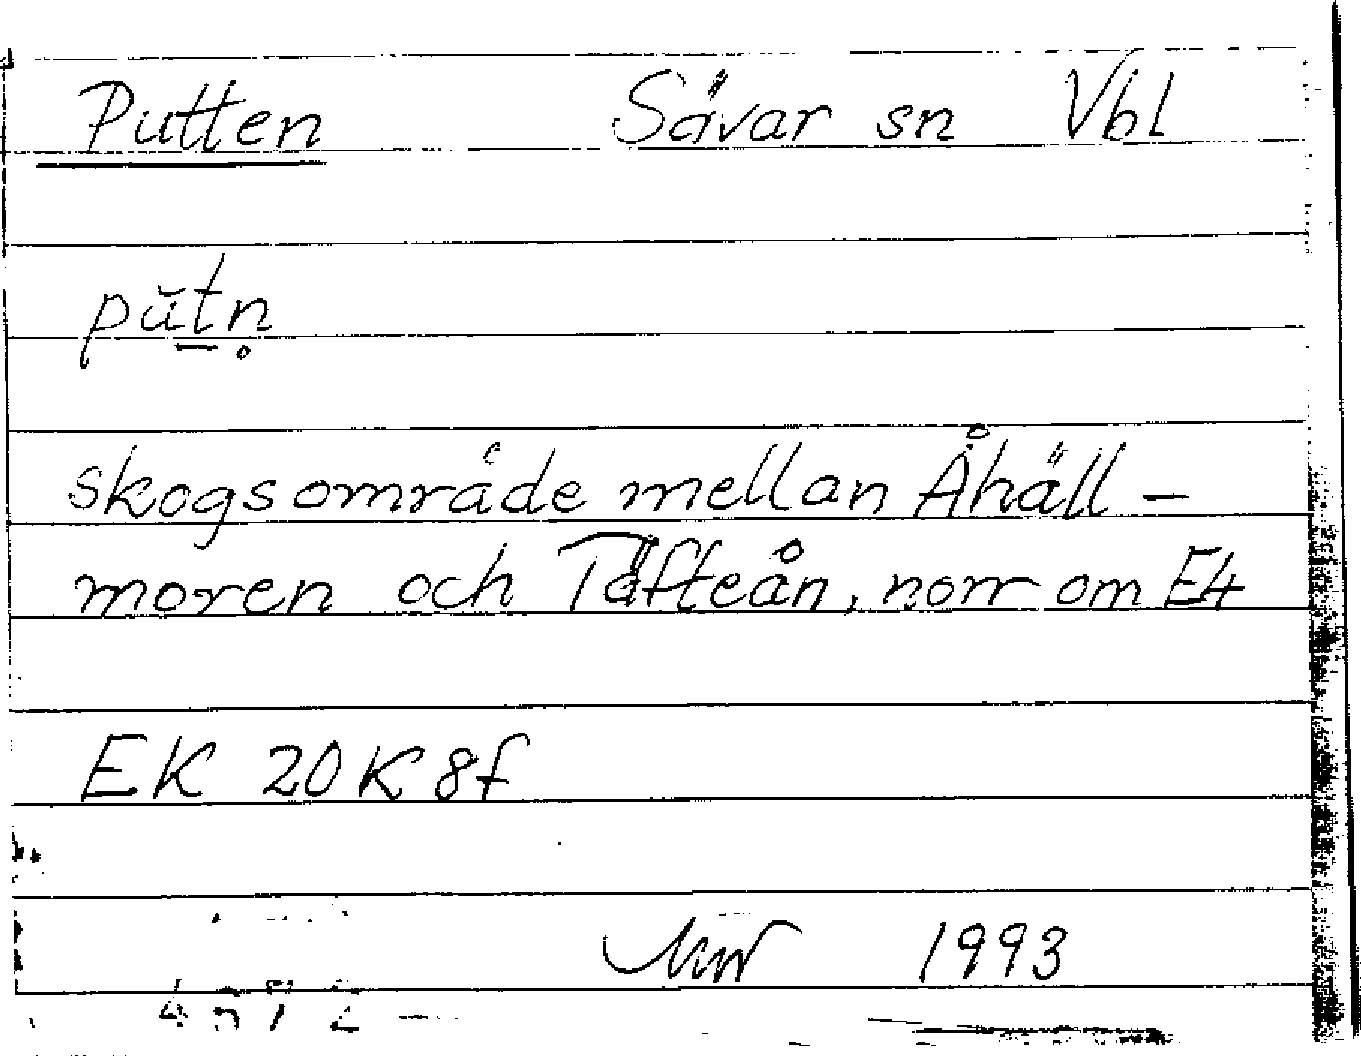 Putten Sävar sn Vbl
pŭtn̥
skogsområde mellan Åhäll-
moren och Täfteån, norr om E4
EK 20K 8f
1993